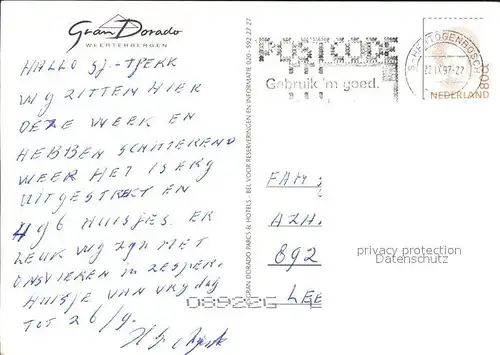 Gran Dorado
WEERTERBERGEN
HALLO SJ.-TJERK
WY ZITTEN HIER
DEZE WEEK EN
HEBBEN SCHITTEREND
WEER HET IS ERG
UITGESTREKT EN
496 HUISJES. ER
LEUK WY ZYN MET
ONS VIEREN IN ZESPER.
HUISJE VAN VRYDAG
TOT 26/9.
GRAN DORADO PARCS & HOTELS - BEL VOOR RESERVERINGEN EN INFORMATIE 020 - 592 27 27
POSTCODE
Gebruik 'm goed.
S-HERTOGENBOSCH
22 IX 97-22
NEDERLAND
80c
FAM
AZH.
892
LEE
privacy protection
Datenschutz